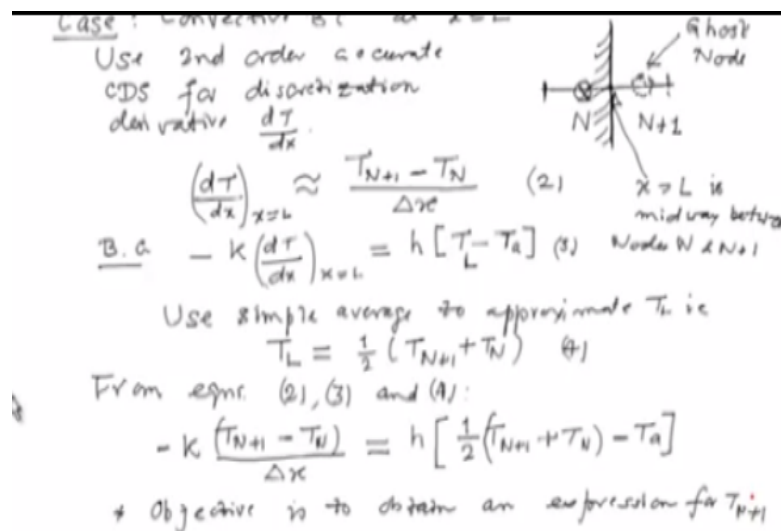 Case : Convective BC at x=L
Use 2nd order accurate
CDS for discretization
derivative dT/dx.
Ghost
Node
N N+1
(dT/dx)x=L ≈ (TN+1 - TN)/Δx (2)
x=L is
midway between
Nodes N & N+1
B.C - k (dT/dx)x=L = h [TL - Ta] (3)
Use simple average to approximate TL ie
TL = 1/2 (TN+1 + TN) (4)
From eqns. (2), (3) and (4):
- k (TN+1 - TN)/Δx = h [1/2 (TN+1 + TN) - Ta]
* Objective is to obtain an expression for TN+1